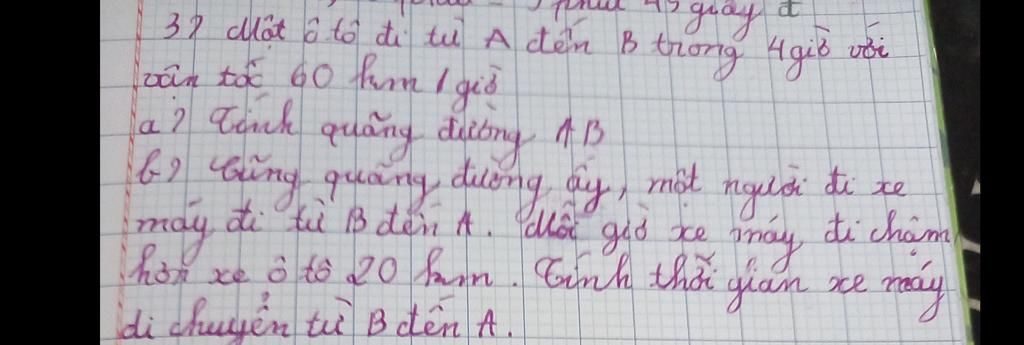 phút 45 giây đ
3) Một ô tô đi từ A đến B trong 4 giờ với
vận tốc 60 km / giờ
a) Tính quãng đường AB
b) Cũng quãng đường ấy, một người đi xe
máy đi từ B đến A. Mỗi giờ xe máy đi chậm
hơn xe ô tô 20 km. Tính thời gian xe máy
di chuyển từ B đến A.